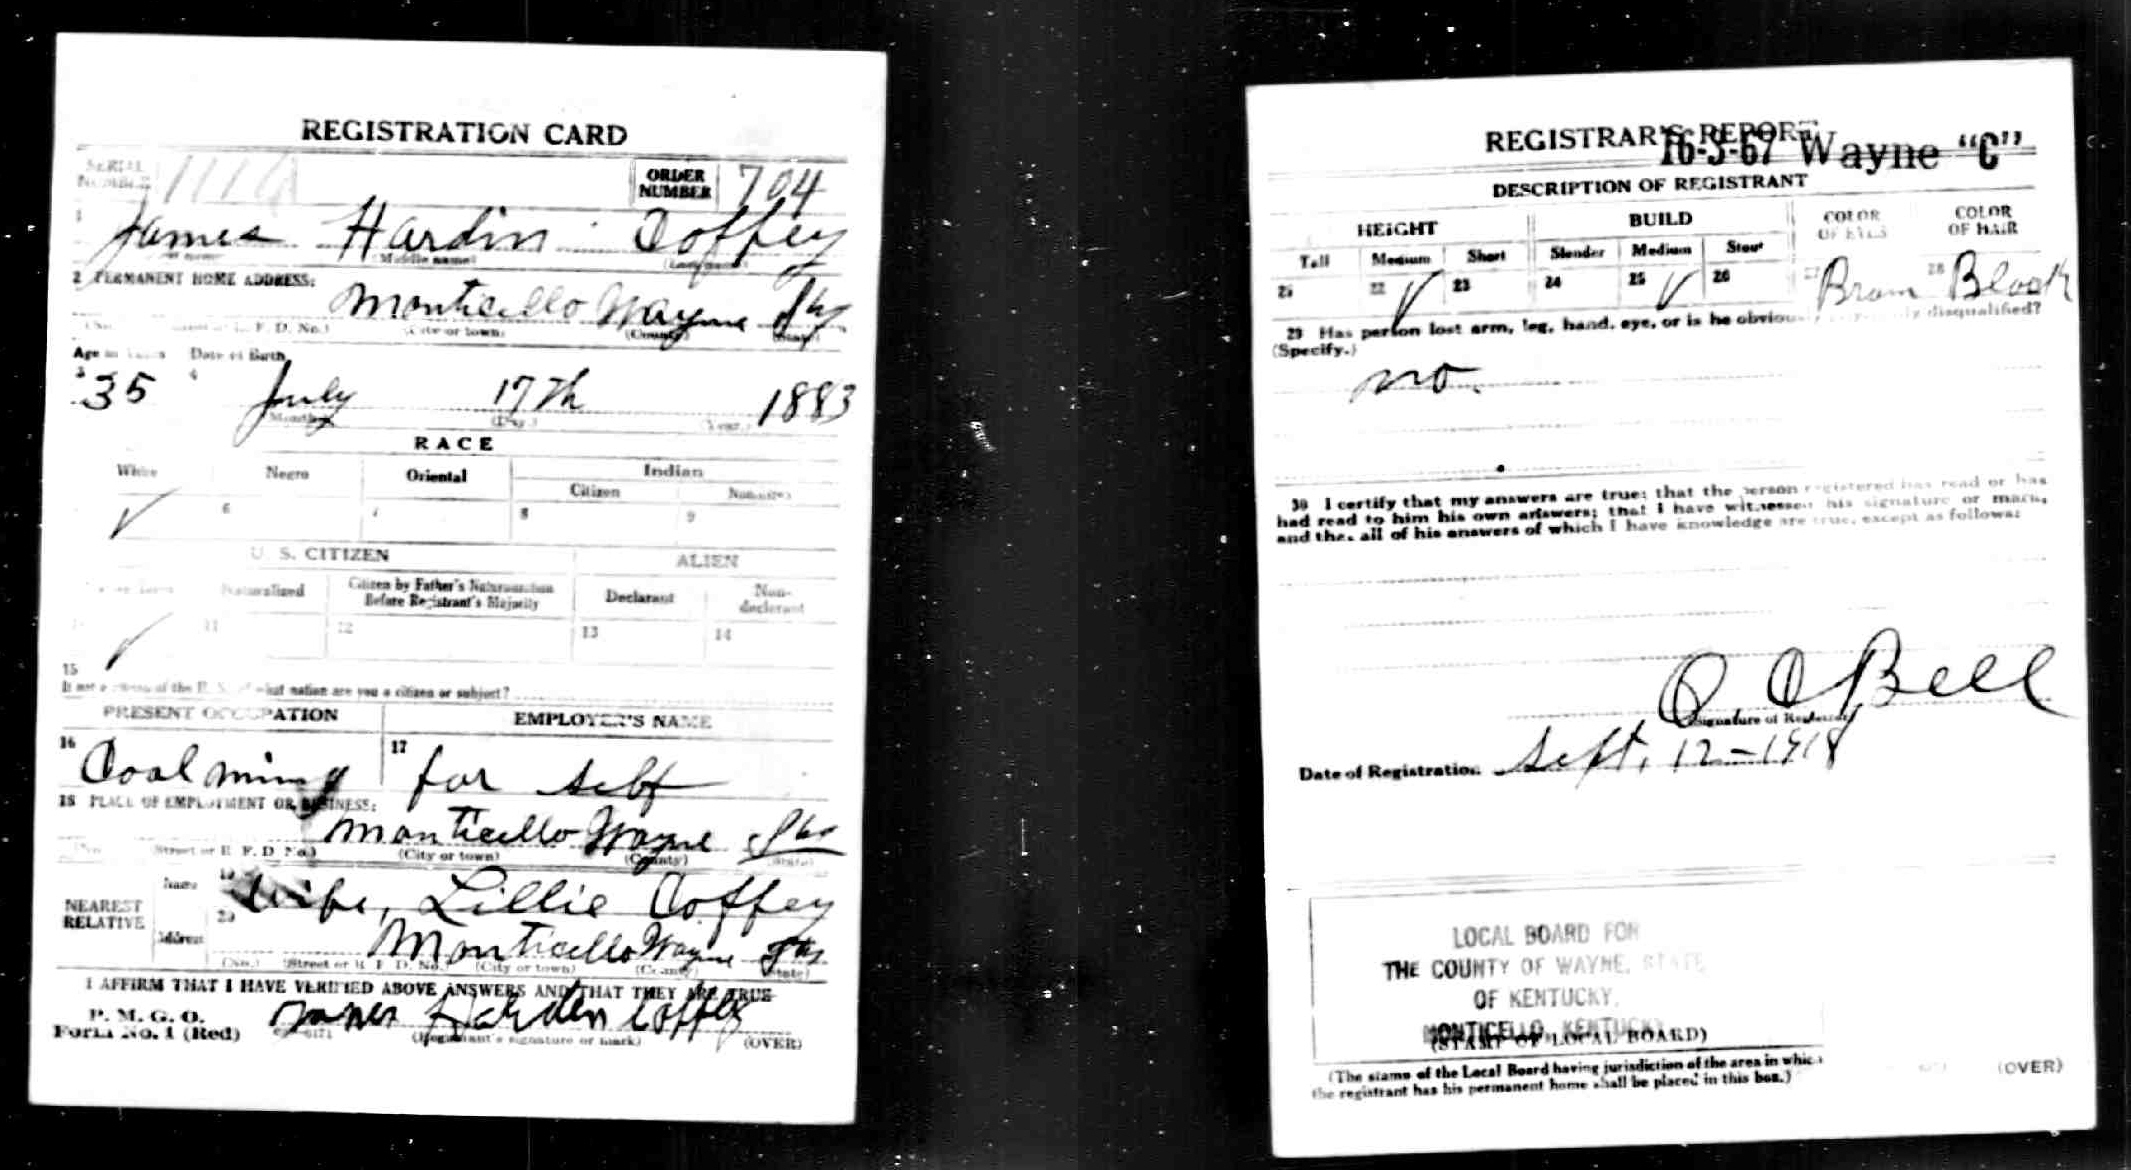 REGISTRATION CARD
SERIAL NUMBER
ORDER NUMBER 704
1 James Hardin Coffey
(Middle name)
2 PERMANENT HOME ADDRESS:
Monticello Wayne Ky
F. D. No.) (City or town) (County) (State)
Age in Years Date of Birth
3 35 4 July 17th 1883
(Month) (Day.) (Year.)
RACE
White Negro Oriental Indian
Citizen
✓ 6 7 8 9
U. S. CITIZEN ALIEN
Naturalized Citizen by Father's Naturalization Before Registrant's Majority Declarant Non-declarant
✓ 11 12 13 14
15
If not a citizen of the U. S. of what nation are you a citizen or subject?
PRESENT OCCUPATION EMPLOYER'S NAME
16 Coal mining 17 for self
18 PLACE OF EMPLOYMENT OR BUSINESS:
Monticello Wayne Ky
Street or R. F. D. No.) (City or town) (County) (State)
NEAREST RELATIVE
Name 19 Wife, Lillie Coffey
Address 20 Monticello Wayne Ky
(No.) (Street or R. F. D. No.) (City or town) (County) (State)
I AFFIRM THAT I HAVE VERIFIED ABOVE ANSWERS AND THAT THEY ARE TRUE
P. M. G. O.
Form No. 1 (Red) James Harden Coffey
(Registrant's signature or mark) (OVER)
REGISTRAR'S REPORT
16-3-67 Wayne "C"
DESCRIPTION OF REGISTRANT
HEIGHT BUILD COLOR OF EYES COLOR OF HAIR
Tall Medium Short Slender Medium Stout
21 22 ✓ 23 24 25 ✓ 26 27 Brown 28 Black
29 Has person lost arm, leg, hand, eye, or is he obviously physically disqualified?
(Specify.)
no.
30 I certify that my answers are true; that the person registered has read or has
had read to him his own answers; that I have witnessed his signature or mark,
and that all of his answers of which I have knowledge are true, except as follows:
O. O Bell
(Signature of Registrar)
Date of Registration Sept. 12-1918
LOCAL BOARD FOR
THE COUNTY OF WAYNE, STATE
OF KENTUCKY,
MONTICELLO, KENTUCKY
(STAMP OF LOCAL BOARD)
(The stamp of the Local Board having jurisdiction of the area in which
the registrant has his permanent home shall be placed in this box.)
(OVER)